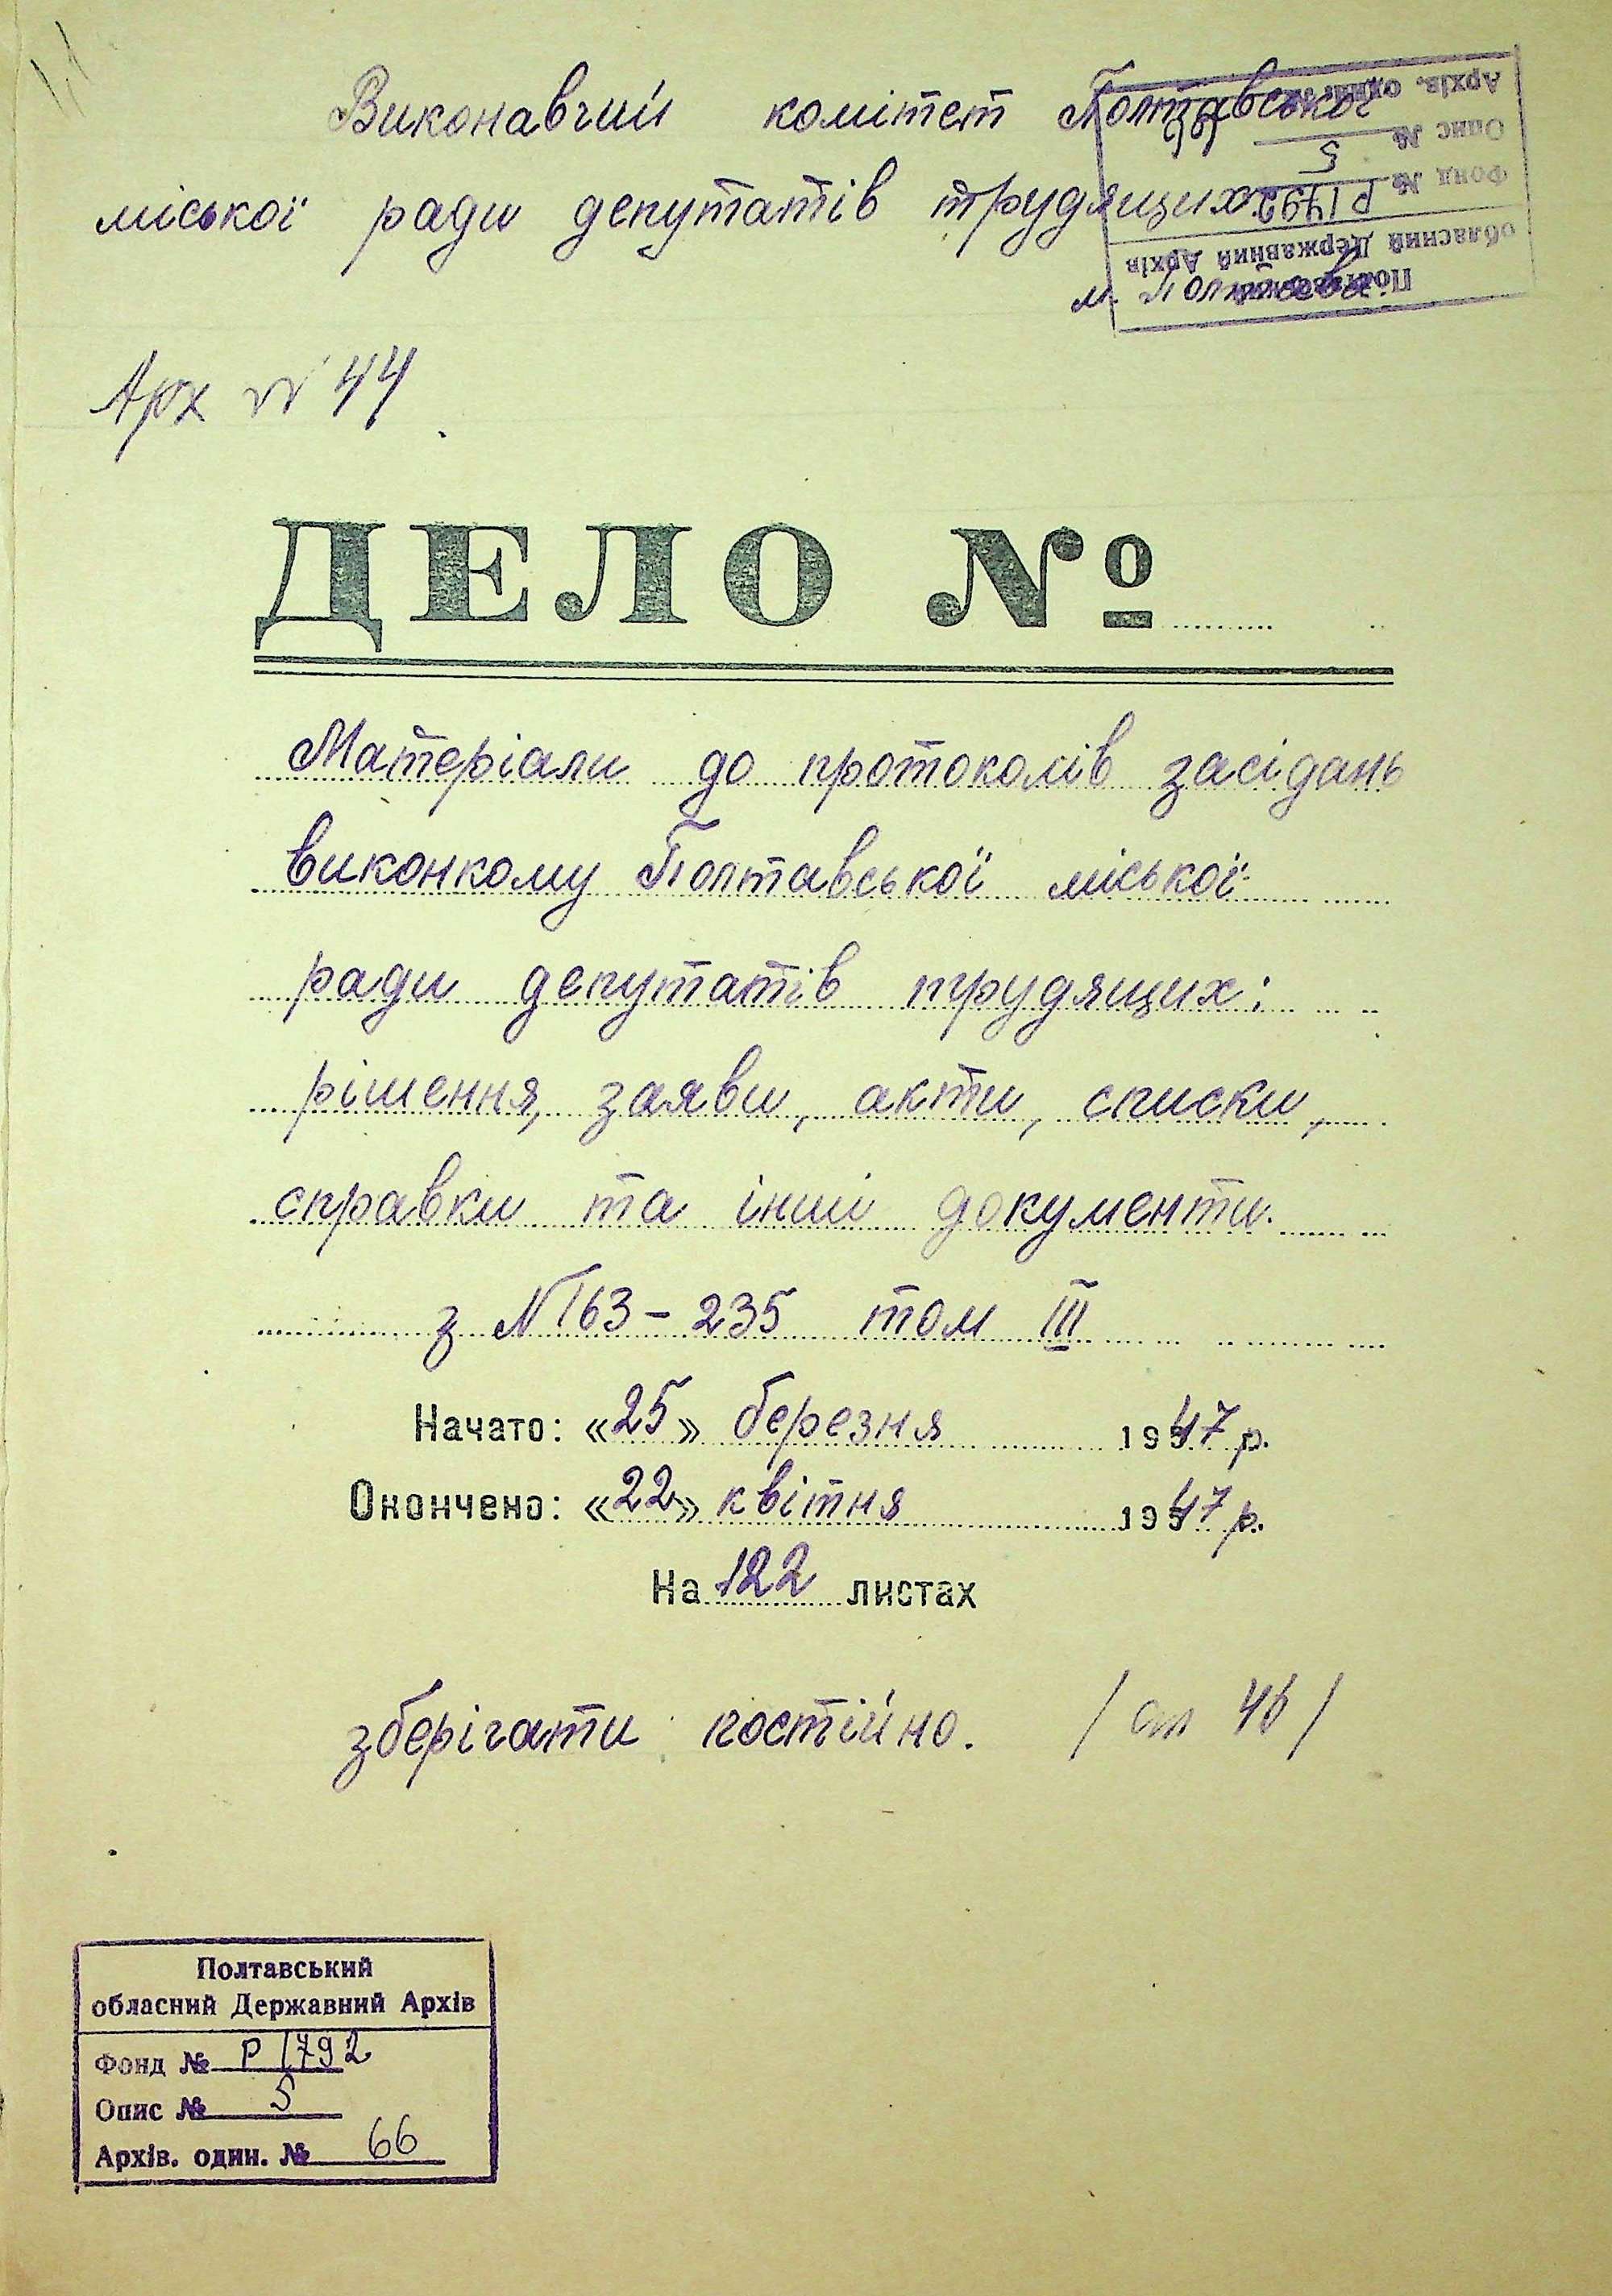 Виконавчий комітет Полтавської
міської ради депутатів трудящих
м. Полтава
Арх № 44
ДЕЛО №
Матеріали до протоколів засідань
виконкому Полтавської міської
ради депутатів трудящих:
рішення, заяви, акти, списки,
справки та інші документи.
з № 163-235 том III
Начато: «25» березня 1947 р.
Окончено: «22» квітня 1947 р.
На 122 листах
зберігати постійно. / 46 /
Полтавський
обласний Державний Архів
Фонд № Р 1792
Опис № 5
Архів. один. №
Полтавський
обласний Державний Архів
Фонд № Р 1792
Опис № 5
Архів. один. № 66